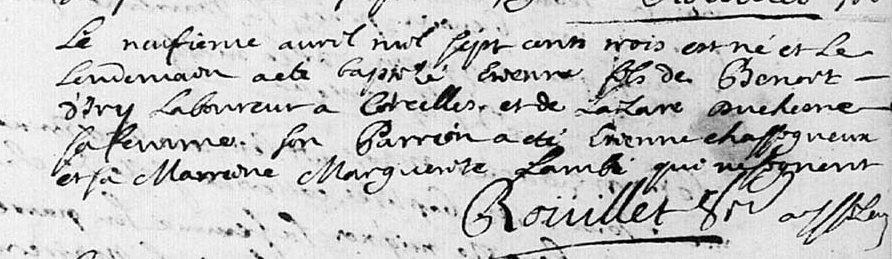 Le neufieme avril mil sept cents trois est né et le
lendemain a eté baptisé Etienne fils de Benoit
d'Iry laboureur a Corcelles et de Lazare Duchesne
sa femme. son Parrein a eté Etienne chassogneux
et sa Marreine Marguerite Lambé qui ne signent
Rouillet